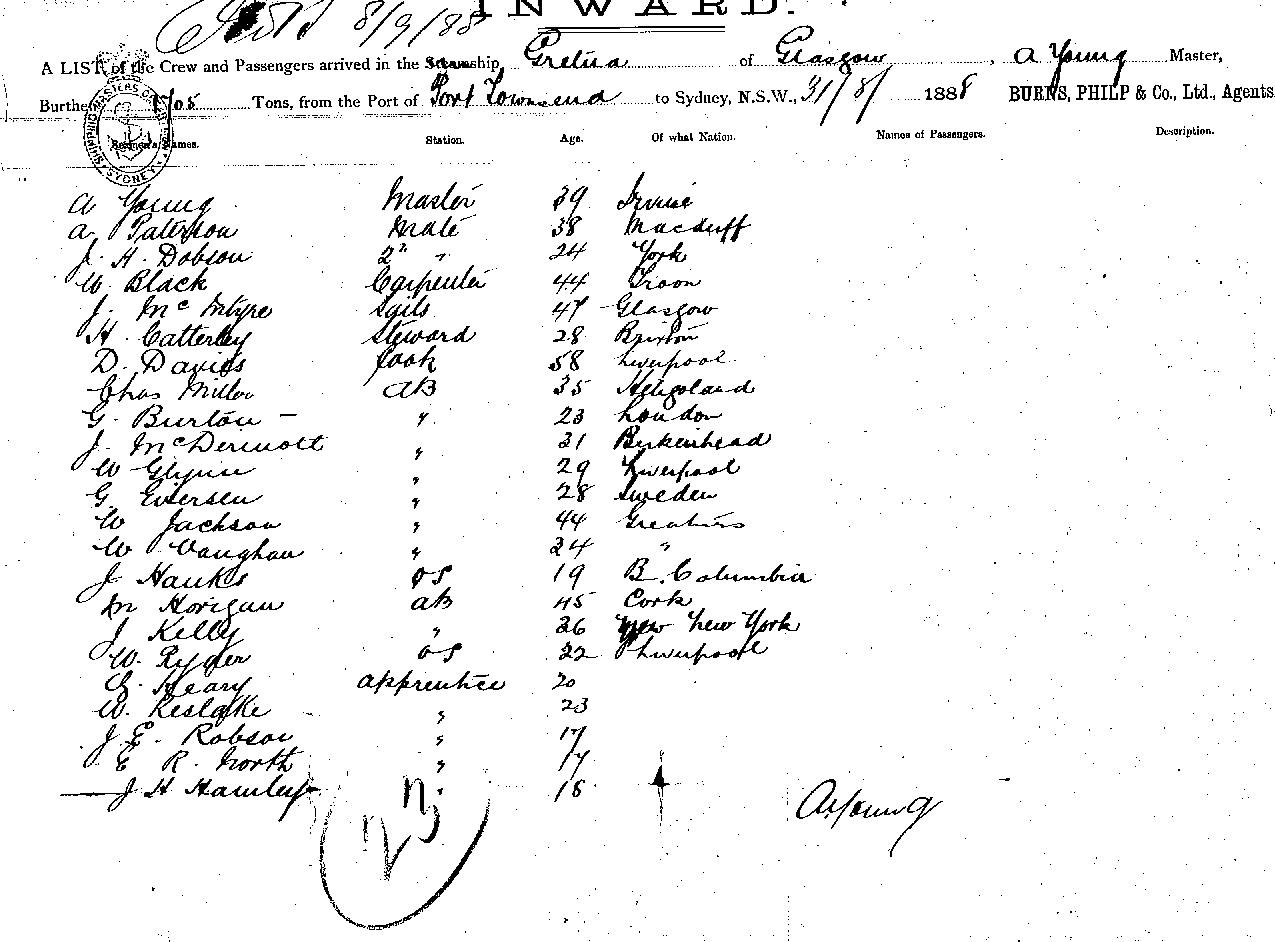 INWARD.
8/9/88
A LIST of the Crew and Passengers arrived in the ship Gretna of Glasgow, A Young Master,
Burthen 1705 Tons, from the Port of Port Townsend to Sydney, N.S.W., 31/8/ 1888 BURNS, PHILP & Co., Ltd., Agents
SHIPPING MASTERS SYDNEY
Names. Station. Age. Of what Nation. Names of Passengers. Description.
A Young Master 39 Irvine
A. Paterson Mate 38 Macduff
J. H. Dobson 2" " 24 York
W. Black Carpenter 44 Troon
J. Mc Intyre Sails 47 Glasgow
H. Catterley Steward 28 Brixton
D. Davies Cook 58 Liverpool
Chas Miller AB 35 Heligoland
G. Burton - " 23 London
J. McDermott " 31 Birkenhead
W Glynn " 29 Liverpool
G. Eversen " 28 Sweden
W Jackson " 44
W Vaughan " 24 "
J Hanks OS 19 B. Columbia
M Horigan AB 45 Cork
J. Kelly " New York
W. Ryder OS 22 Liverpool
Heary Apprentice 20
W. Keslake " 23
J. E. Robson " 17
E R. North " 17
J H Hamley " 18
23
A Young